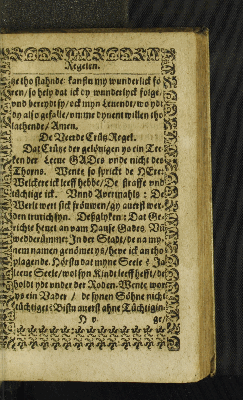 Regelen.
ge tho stahnde: kanstu my wunderlick fö
ren / so help dat ick dy wunderlyck folge /
vnd bereydt sy / ock myn Leuendt / wo ydt
dy also gefalle / vmme dynent willen tho
lathende / Amen.
De Veerde Crützregel.
Dat Crütze der gelövigen ys ein Te-
ken der Leeue GADes vnde nicht des
Thorns. Wente so sprickt de HEre:
Welckere ick leeff hebbe / De straffe vnd
tüchtige ick. Vnd Auermahls: De
Werlt wert sick fröuwen / gy auerst wer-
den trurich syn. Deßglyken: Dat Ge-
richte heuet an vam Huse Gades. Nu
wedderümme: In der Stadt / de na my-
nem namen genömet ys / heue ick an tho
plagende. Hörstu dat myne Seele? Ja
leeue Seele / wol syn Kindt leeff hefft / de
holdt ydt vnder der Roden. Wente wor
ys ein Vader / de synen Söhne nicht
tüchtiget? Bistu auerst ahne Tüchtigin-
H v ge /